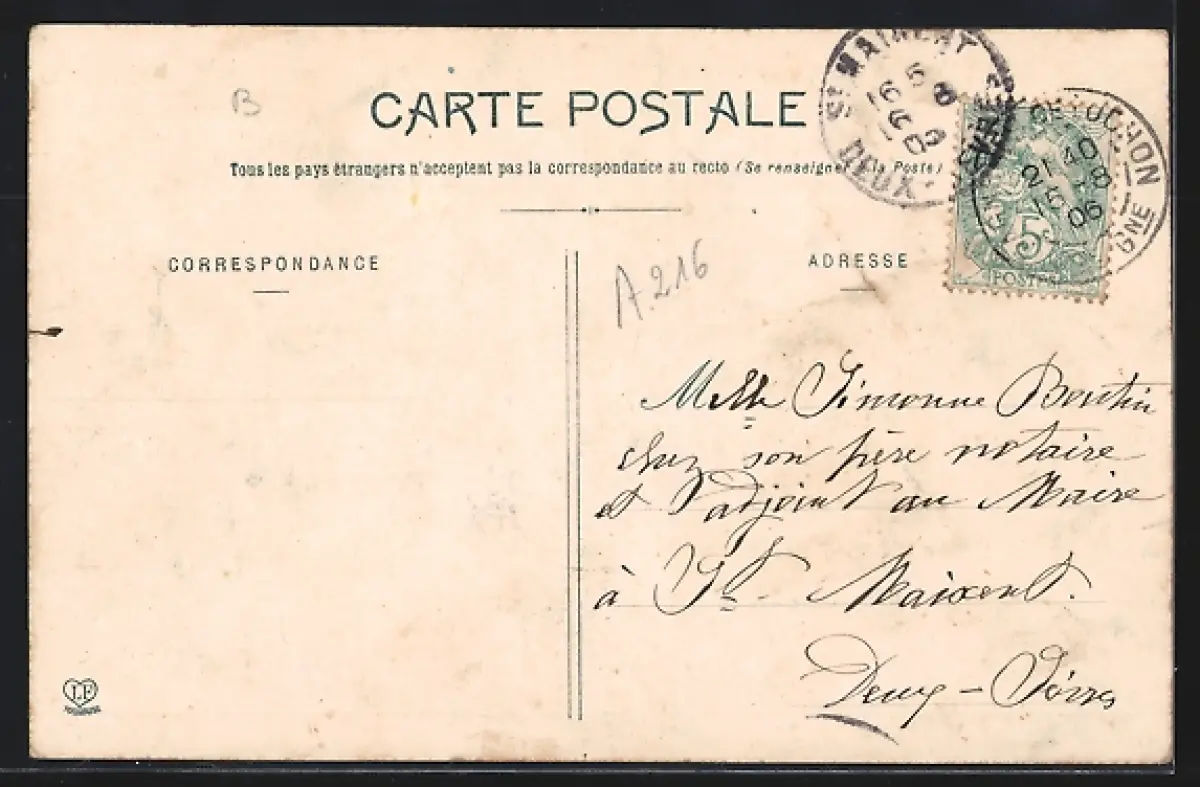 B
CARTE POSTALE
Tous les pays étrangers n'acceptent pas la correspondance au recto (Se renseigner à la Poste)
CORRESPONDANCE
ADRESSE
A.216
St MAIXENT
DEUX-SEVRES
16 8
06
LUCHON
21 40
15 8
06
5
POSTES
Melle Simonne Boutin
chez son père notaire
et adjoint au Maire
à St Maixent.
Deux-Sèvres
LF